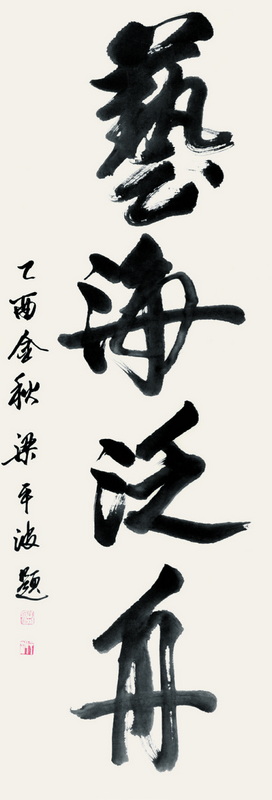 藝海泛舟
乙酉金秋 梁平波題